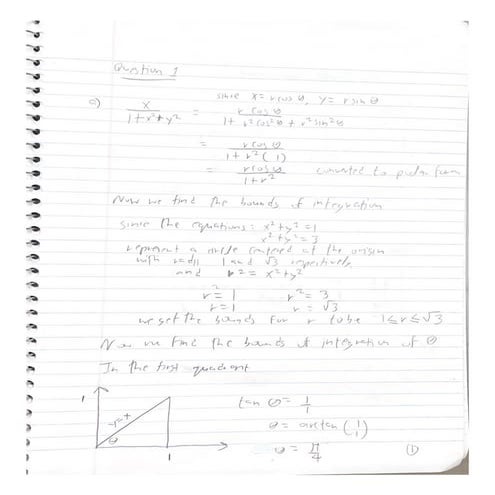 Question 1
since x = r cos θ, y = r sin θ
a) x / (1 + x² + y²) = r cos θ / (1 + r² cos² θ + r² sin² θ)
= r cos θ / (1 + r² (1))
= r cos θ / (1 + r²) converted to polar form
Now we find the bounds of integration
since the equations: x² + y² = 1
x² + y² = 3
represent a circle centered at the origin
with radii 1 and √3 respectively
and r² = x² + y²
r² = 1 r² = 3
r = 1 r = √3
we get the bounds for r to be 1 ≤ r ≤ √3
Now we find the bounds of integration of θ
In the first quadrant
1
y = x
θ
1
tan θ = 1/1
θ = arctan (1/1)
θ = π/4
①